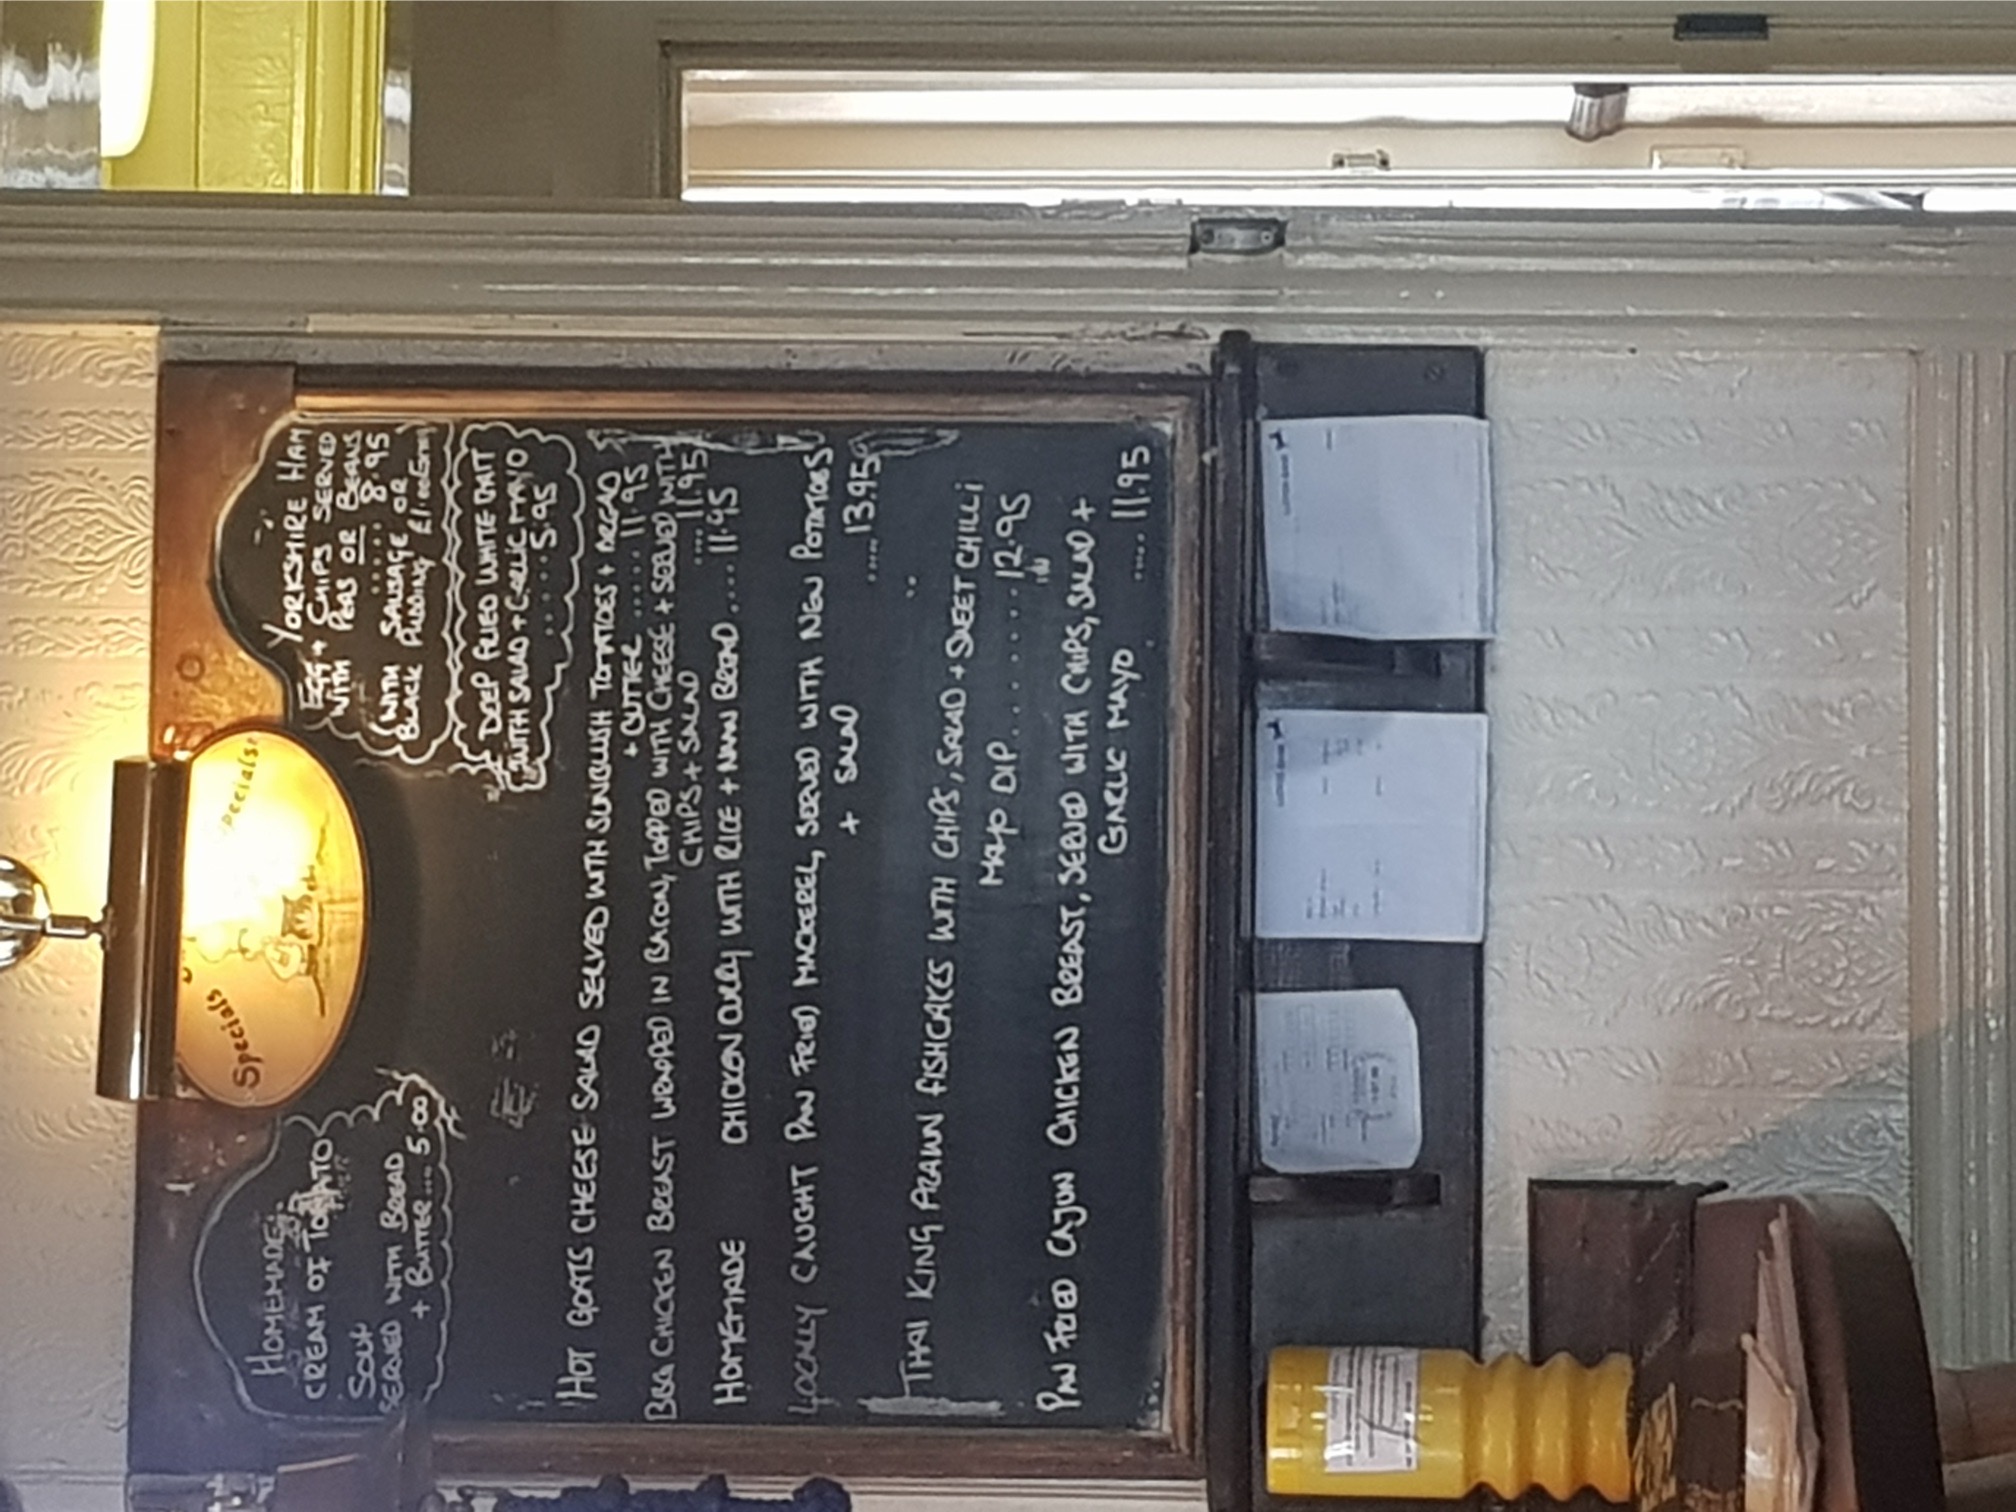 Specials
Specials
HOMEMADE
CREAM OF TOMATO
SOUP
SERVED WITH BREAD
+ BUTTER.... 5.00
YORKSHIRE HAM
EGG + CHIPS SERVED
WITH PEAS OR BEANS
...... 8.95
(WITH SAUSAGE OR
BLACK PUDDING £1.00 EXTRA)
DEEP FRIED WHITEBAIT
WITH SALAD + GARLIC MAYO
...... 5.95
HOT GOATS CHEESE SALAD SERVED WITH SUNBLUSH TOMATOES + BREAD
+ BUTTER ..... 11.95
BBQ CHICKEN BREAST WRAPPED IN BACON, TOPPED WITH CHEESE + SERVED WITH
CHIPS + SALAD .... 11.95
HOMEMADE CHICKEN CURRY WITH RICE + NAAN BREAD .... 11.95
LOCALLY CAUGHT PAN FRIED MACKEREL, SERVED WITH NEW POTATOES
+ SALAD ..... 13.95
THAI KING PRAWN FISHCAKES WITH CHIPS, SALAD + SWEET CHILLI
MAYO DIP......... 12.95
PAN FRIED CAJUN CHICKEN BREAST, SERVED WITH CHIPS, SALAD +
GARLIC MAYO .... 11.95